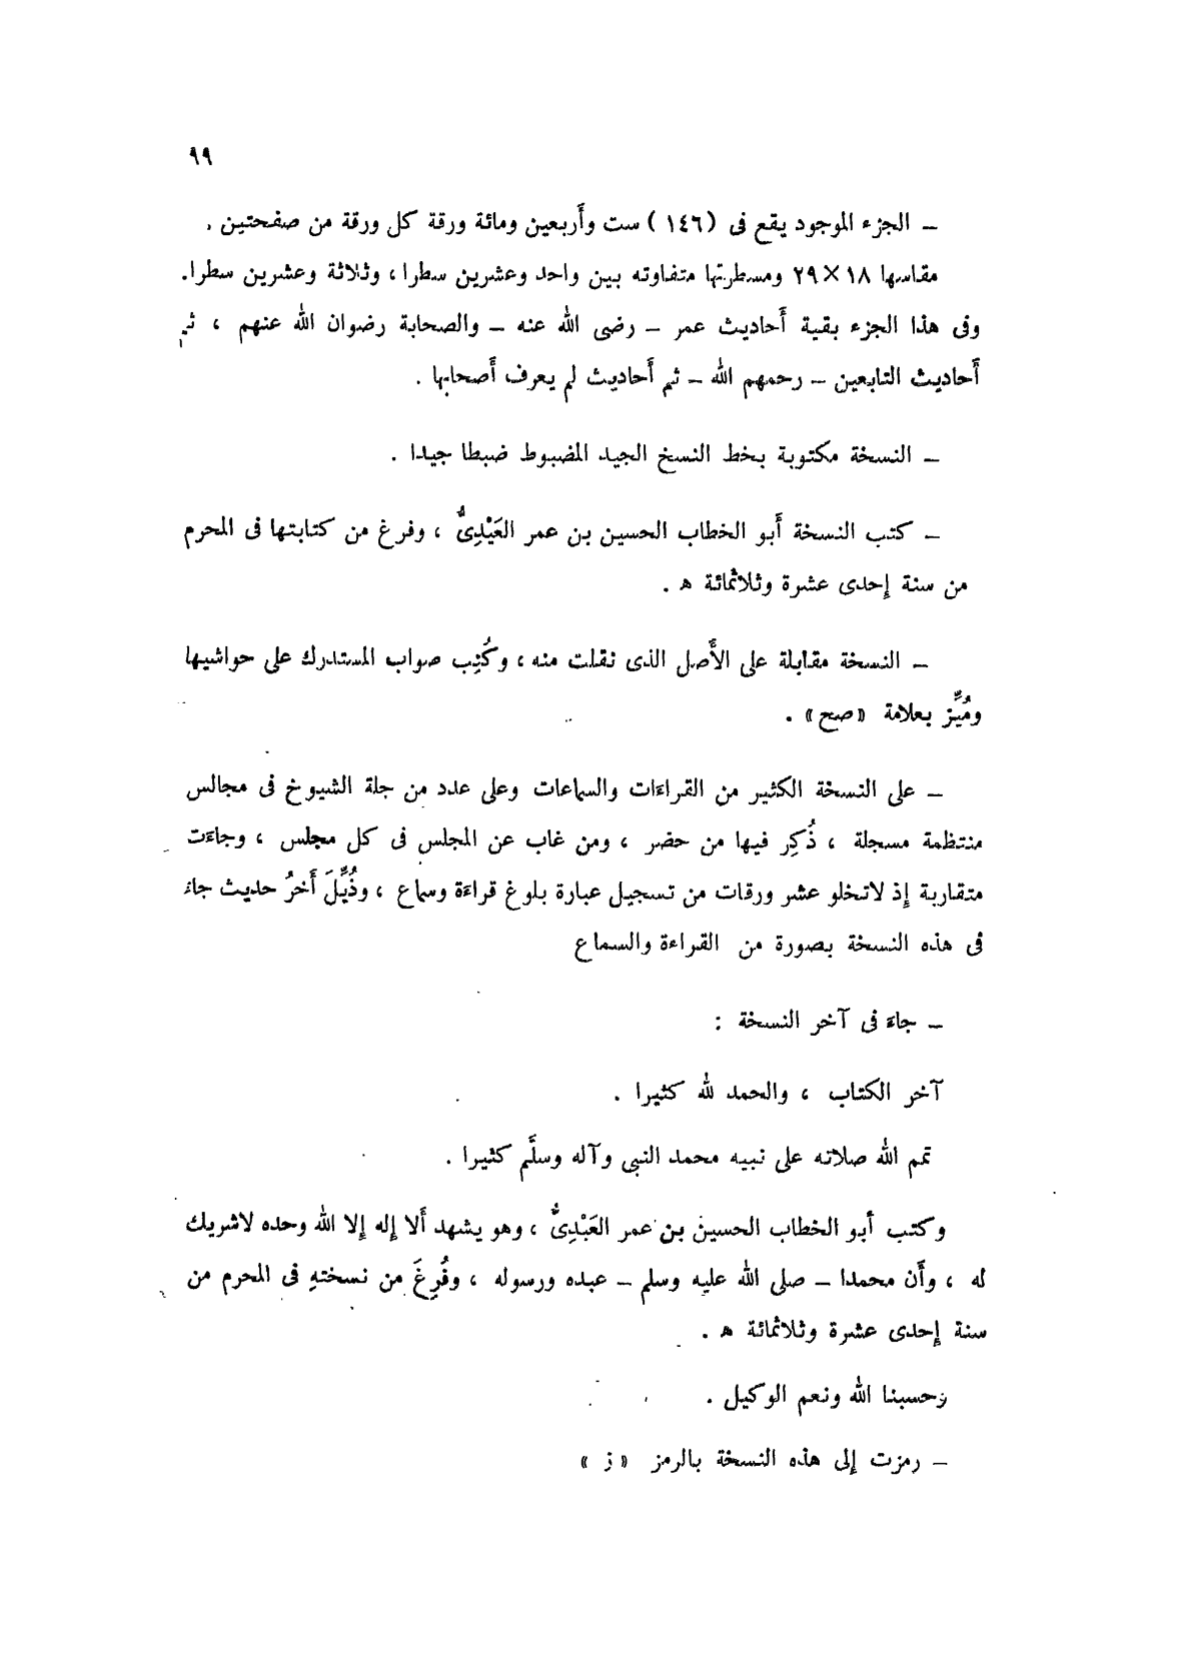 ٩٩
– الجزء الموجود يقع فى (١٤٦) ست وأَربعين ومائة ورقة كل ورقة من صفحتين .
مقاسها ١٨×٢٩ ومسطرتها متفاوته بين واحد وعشرين سطرا ، وثلاثة وعشرين سطرا.
وفى هذا الجزء بقية أَحاديث عمر – رضى الله عنه – والصحابة رضوان الله عنهم ، ثم
أَحاديث التابعين – رحمهم الله – ثم أَحاديث لم يعرف أَصحابها .
– النسخة مكتوبة بخط النسخ الجيد المضبوط ضبطا جيدا .
– كتب النسخة أَبو الخطاب الحسين بن عمر العَيْدِىُّ ، وفرغ من كتابتها فى المحرم
من سنة إحدى عشرة وثلاثمائة ه .
– النسخة مقابلة على الأَصل الذى نقلت منه ، وكُتِب صواب المستدرك على حواشيها
ومُيِّز بعلامة «صح» .
– على النسخة الكثير من القراءات والسماعات وعلى عدد من جلة الشيوخ فى مجالس
منتظمة مسجلة ، ذُكِر فيها من حضر ، ومن غاب عن المجلس فى كل مجلس ، وجاءت
متقاربة إذ لاتخلو عشر ورقات من تسجيل عبارة بلوغ قراءة وسماع ، وذُيِّلَ أَخرُ حديث جاء
فى هذه النسخة بصورة من القراءة والسماع
– جاء فى آخر النسخة :
آخر الكتاب ، والحمد لله كثيرا .
تمم الله صلاته على نبيه محمد النبى وآله وسلَّم كثيرا .
وكتب أبو الخطاب الحسين بن عمر العَبْدِىُّ ، وهو يشهد أَلا إله إلا الله وحده لاشريك
له ، وأَن محمدا – صلى الله عليه وسلم – عبده ورسوله ، وفُرِغَ من نسختهِ فى المحرم من
سنة إحدى عشرة وثلاثمائة ه .
وحسبنا الله ونعم الوكيل .
– رمزت إلى هذه النسخة بالرمز « ز »